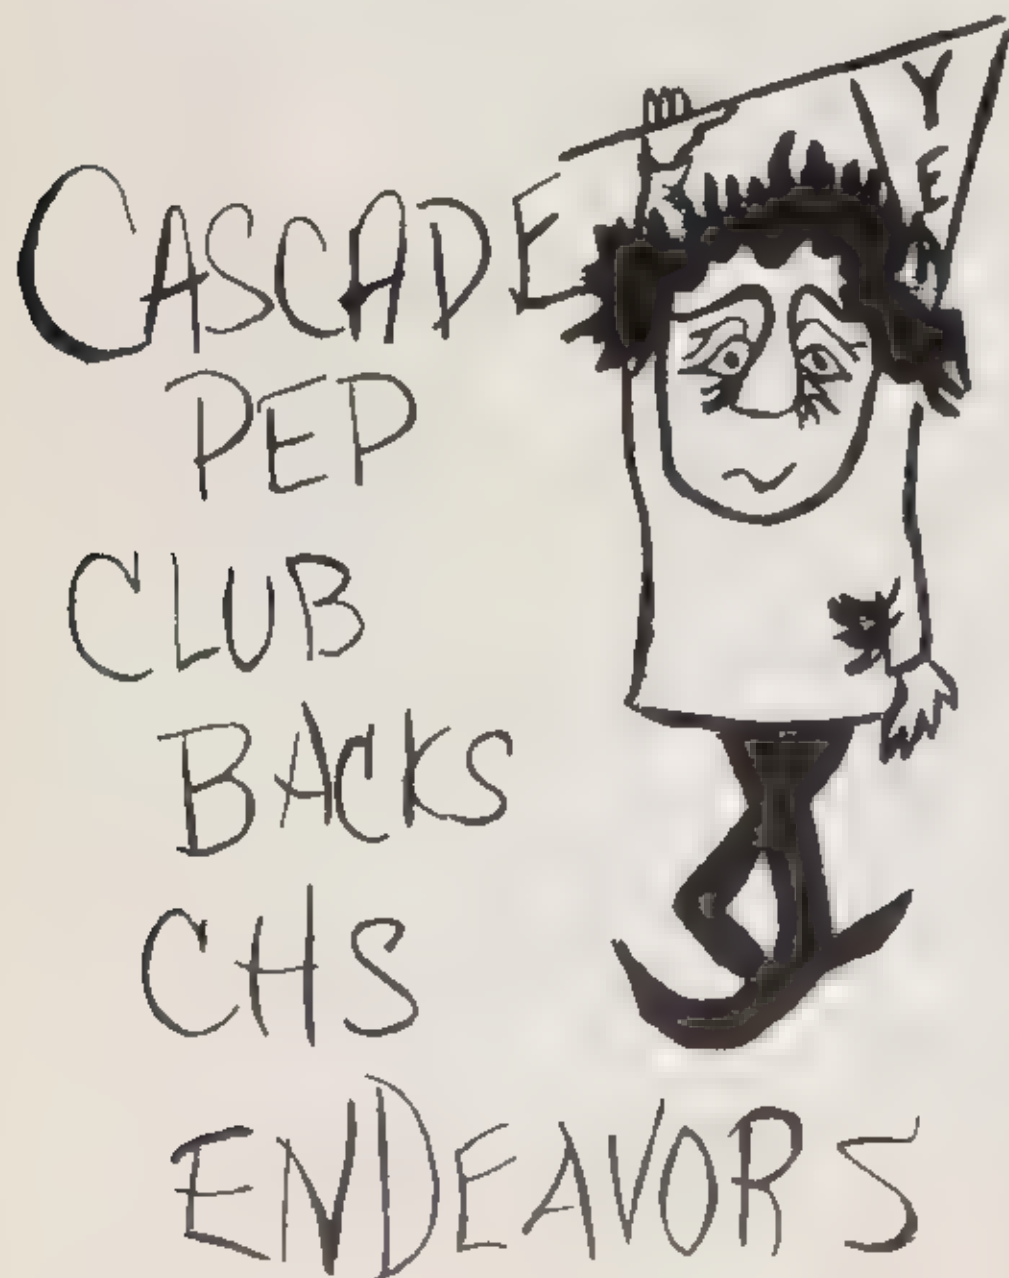 YEN
CASCADE
PEP
CLUB
BACKS
CHS
ENDEAVORS